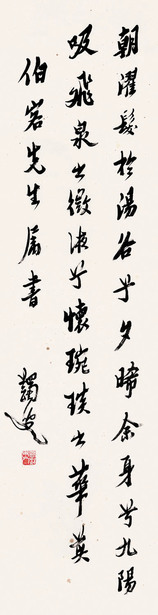 朝濯髮於湯谷兮夕晞余身兮九陽
吸飛泉之微液兮懷琬琰之華英
伯宏先生属書